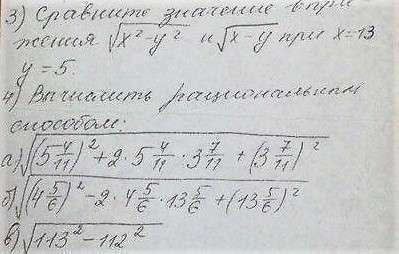 3) Сравните значение выра-
жения √x²-y² и √x-y при x=13
y=5.
4) Вычислить рациональным
способом:
а) √(5 4/11)² + 2·5 4/11 · 3 7/11 + (3 7/11)²
б) √(4 5/6)² - 2·4 5/6 · 13 5/6 + (13 5/6)²
в) √113² - 112²